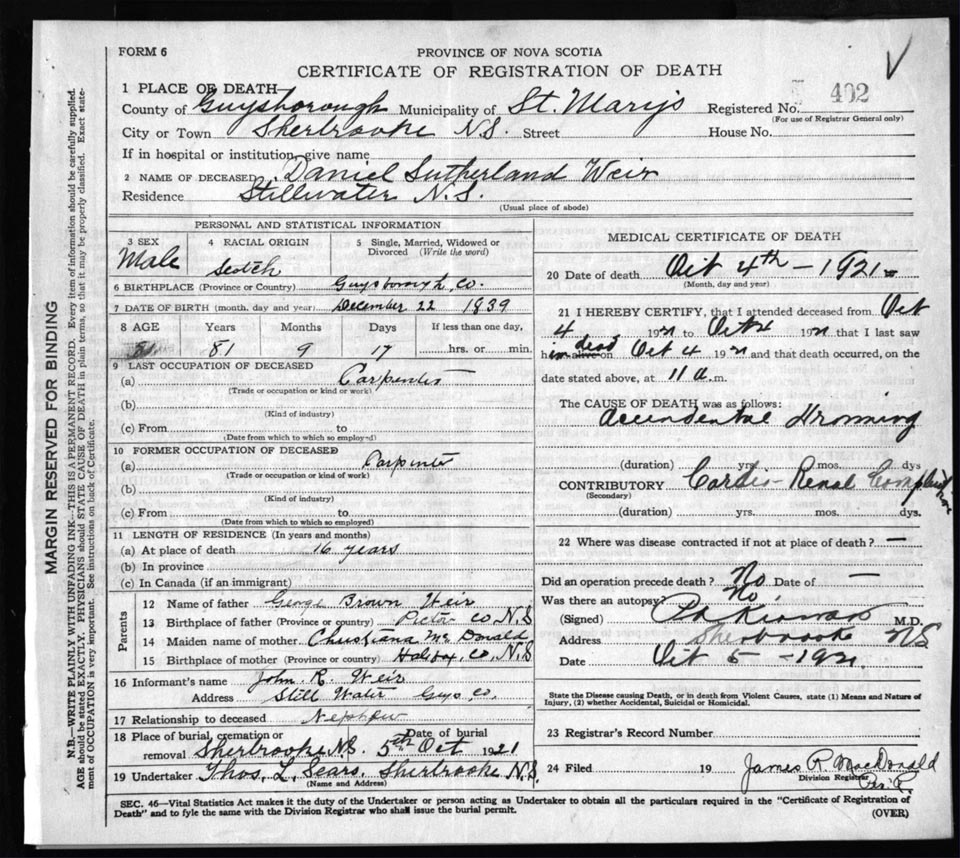 FORM 6
PROVINCE OF NOVA SCOTIA
CERTIFICATE OF REGISTRATION OF DEATH
402
MARGIN RESERVED FOR BINDING
N.B.—WRITE PLAINLY WITH UNFADING INK—THIS IS A PERMANENT RECORD. Every item of information should be carefully supplied.
AGE should be stated EXACTLY. PHYSICIANS should STATE CAUSE OF DEATH in plain terms, so that it may be properly classified. Exact state-
ment of OCCUPATION is very important. See instructions on back of Certificate.
1 PLACE OF DEATH
County of Guysborough Municipality of St. Mary's Registered No.
(For use of Registrar General only)
City or Town Sherbrooke N.S. Street House No.
If in hospital or institution, give name
2 NAME OF DECEASED Daniel Sutherland Weir
Residence Stillwater N.S.
(Usual place of abode)
PERSONAL AND STATISTICAL INFORMATION
3 SEX 4 RACIAL ORIGIN 5 Single, Married, Widowed or
Divorced (Write the word)
Male Scotch
6 BIRTHPLACE (Province or Country) Guysborough, Co.
7 DATE OF BIRTH (month, day and year) December 22 1839
8 AGE Years Months Days If less than one day,
81 81 9 17 hrs. or min.
9 LAST OCCUPATION OF DECEASED
(a) Carpenter
(Trade or occupation or kind or work)
(b)
(Kind of industry)
(c) From to
(Date from which to which so employed)
10 FORMER OCCUPATION OF DECEASED
(a) Carpenter
(Trade or occupation of kind of work)
(b)
(Kind of industry)
(c) From to
(Date from which to which so employed)
11 LENGTH OF RESIDENCE (In years and months)
(a) At place of death 16 years
(b) In province
(c) In Canada (if an immigrant)
Parents
12 Name of father George Brown Weir
13 Birthplace of father (Province or country) Pictou Co N.S
14 Maiden name of mother Christiana McDonald
15 Birthplace of mother (Province or country) Halifax, Co, N.S
16 Informant's name John R. Weir
Address Still Water Guys Co.
17 Relationship to deceased Nephew
18 Place of burial, cremation or Date of burial
removal Sherbrooke N.S. 5th Oct 1921
19 Undertaker Thos. L. Sears. Sherbrooke N.S.
(Name and Address)
MEDICAL CERTIFICATE OF DEATH
20 Date of death Oct 4th - 1921
(Month, day and year)
21 I HEREBY CERTIFY, that I attended deceased from Oct
4 1921 to Oct 4 1921 that I last saw
h im dead alive on Oct 4 1921 and that death occurred, on the
date stated above, at 11 a.m.
The CAUSE OF DEATH was as follows:
Accidental Drowning
(duration) yrs. mos. dys
CONTRIBUTORY Cardio-Renal
(Secondary)
(duration) yrs. mos. dys.
22 Where was disease contracted if not at place of death? —
Did an operation precede death? No Date of —
Was there an autopsy? No.
(Signed) M.D.
Address Sherbrooke NS
Date Oct 5 - 1921.
State the Disease causing Death, or in death from Violent Causes, state (1) Means and Nature of
Injury, (2) whether Accidental, Suicidal or Homicidal.
23 Registrar's Record Number
24 Filed 19 James R. MacDonald
Division Registrar
SEC. 46—Vital Statistics Act makes it the duty of the Undertaker or person acting as Undertaker to obtain all the particulars required in the "Certificate of Registration of
Death" and to fyle the same with the Division Registrar who shall issue the burial permit.
(OVER)